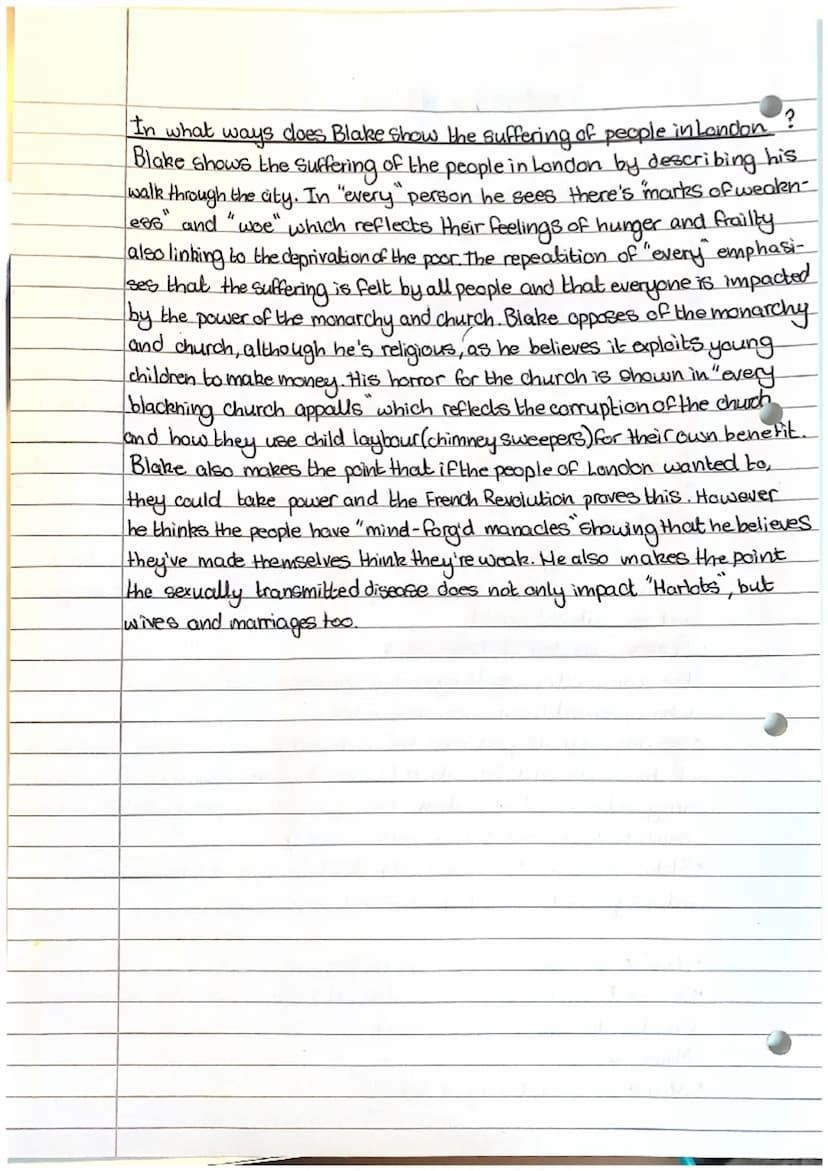 In what ways does Blake show the suffering of people in London?
Blake shows the suffering of the people in London by describing his
walk through the city. In "every" person he sees there's "marks of weakn-
ess" and "woe" which reflects their feelings of hunger and frailty
also linking to the deprivation of the poor. The repeatition of "every" emphasi-
ses that the suffering is felt by all people and that everyone is impacted
by the power of the monarchy and church. Blake opposes of the monarchy
and church, although he's religious, as he believes it exploits young
children to make money. His horror for the church is shown in "every
blackning church appalls" which reflects the corruption of the church
and how they use child laybour (chimney sweepers) for their own benefit.
Blake also makes the point that if the people of London wanted to,
they could take power and the French Revolution proves this. However
he thinks the people have "mind-forg'd manacles" showing that he believes
they've made themselves think they're weak. He also makes the point
the sexually transmitted disease does not only impact "Harlots", but
wives and marriages too.